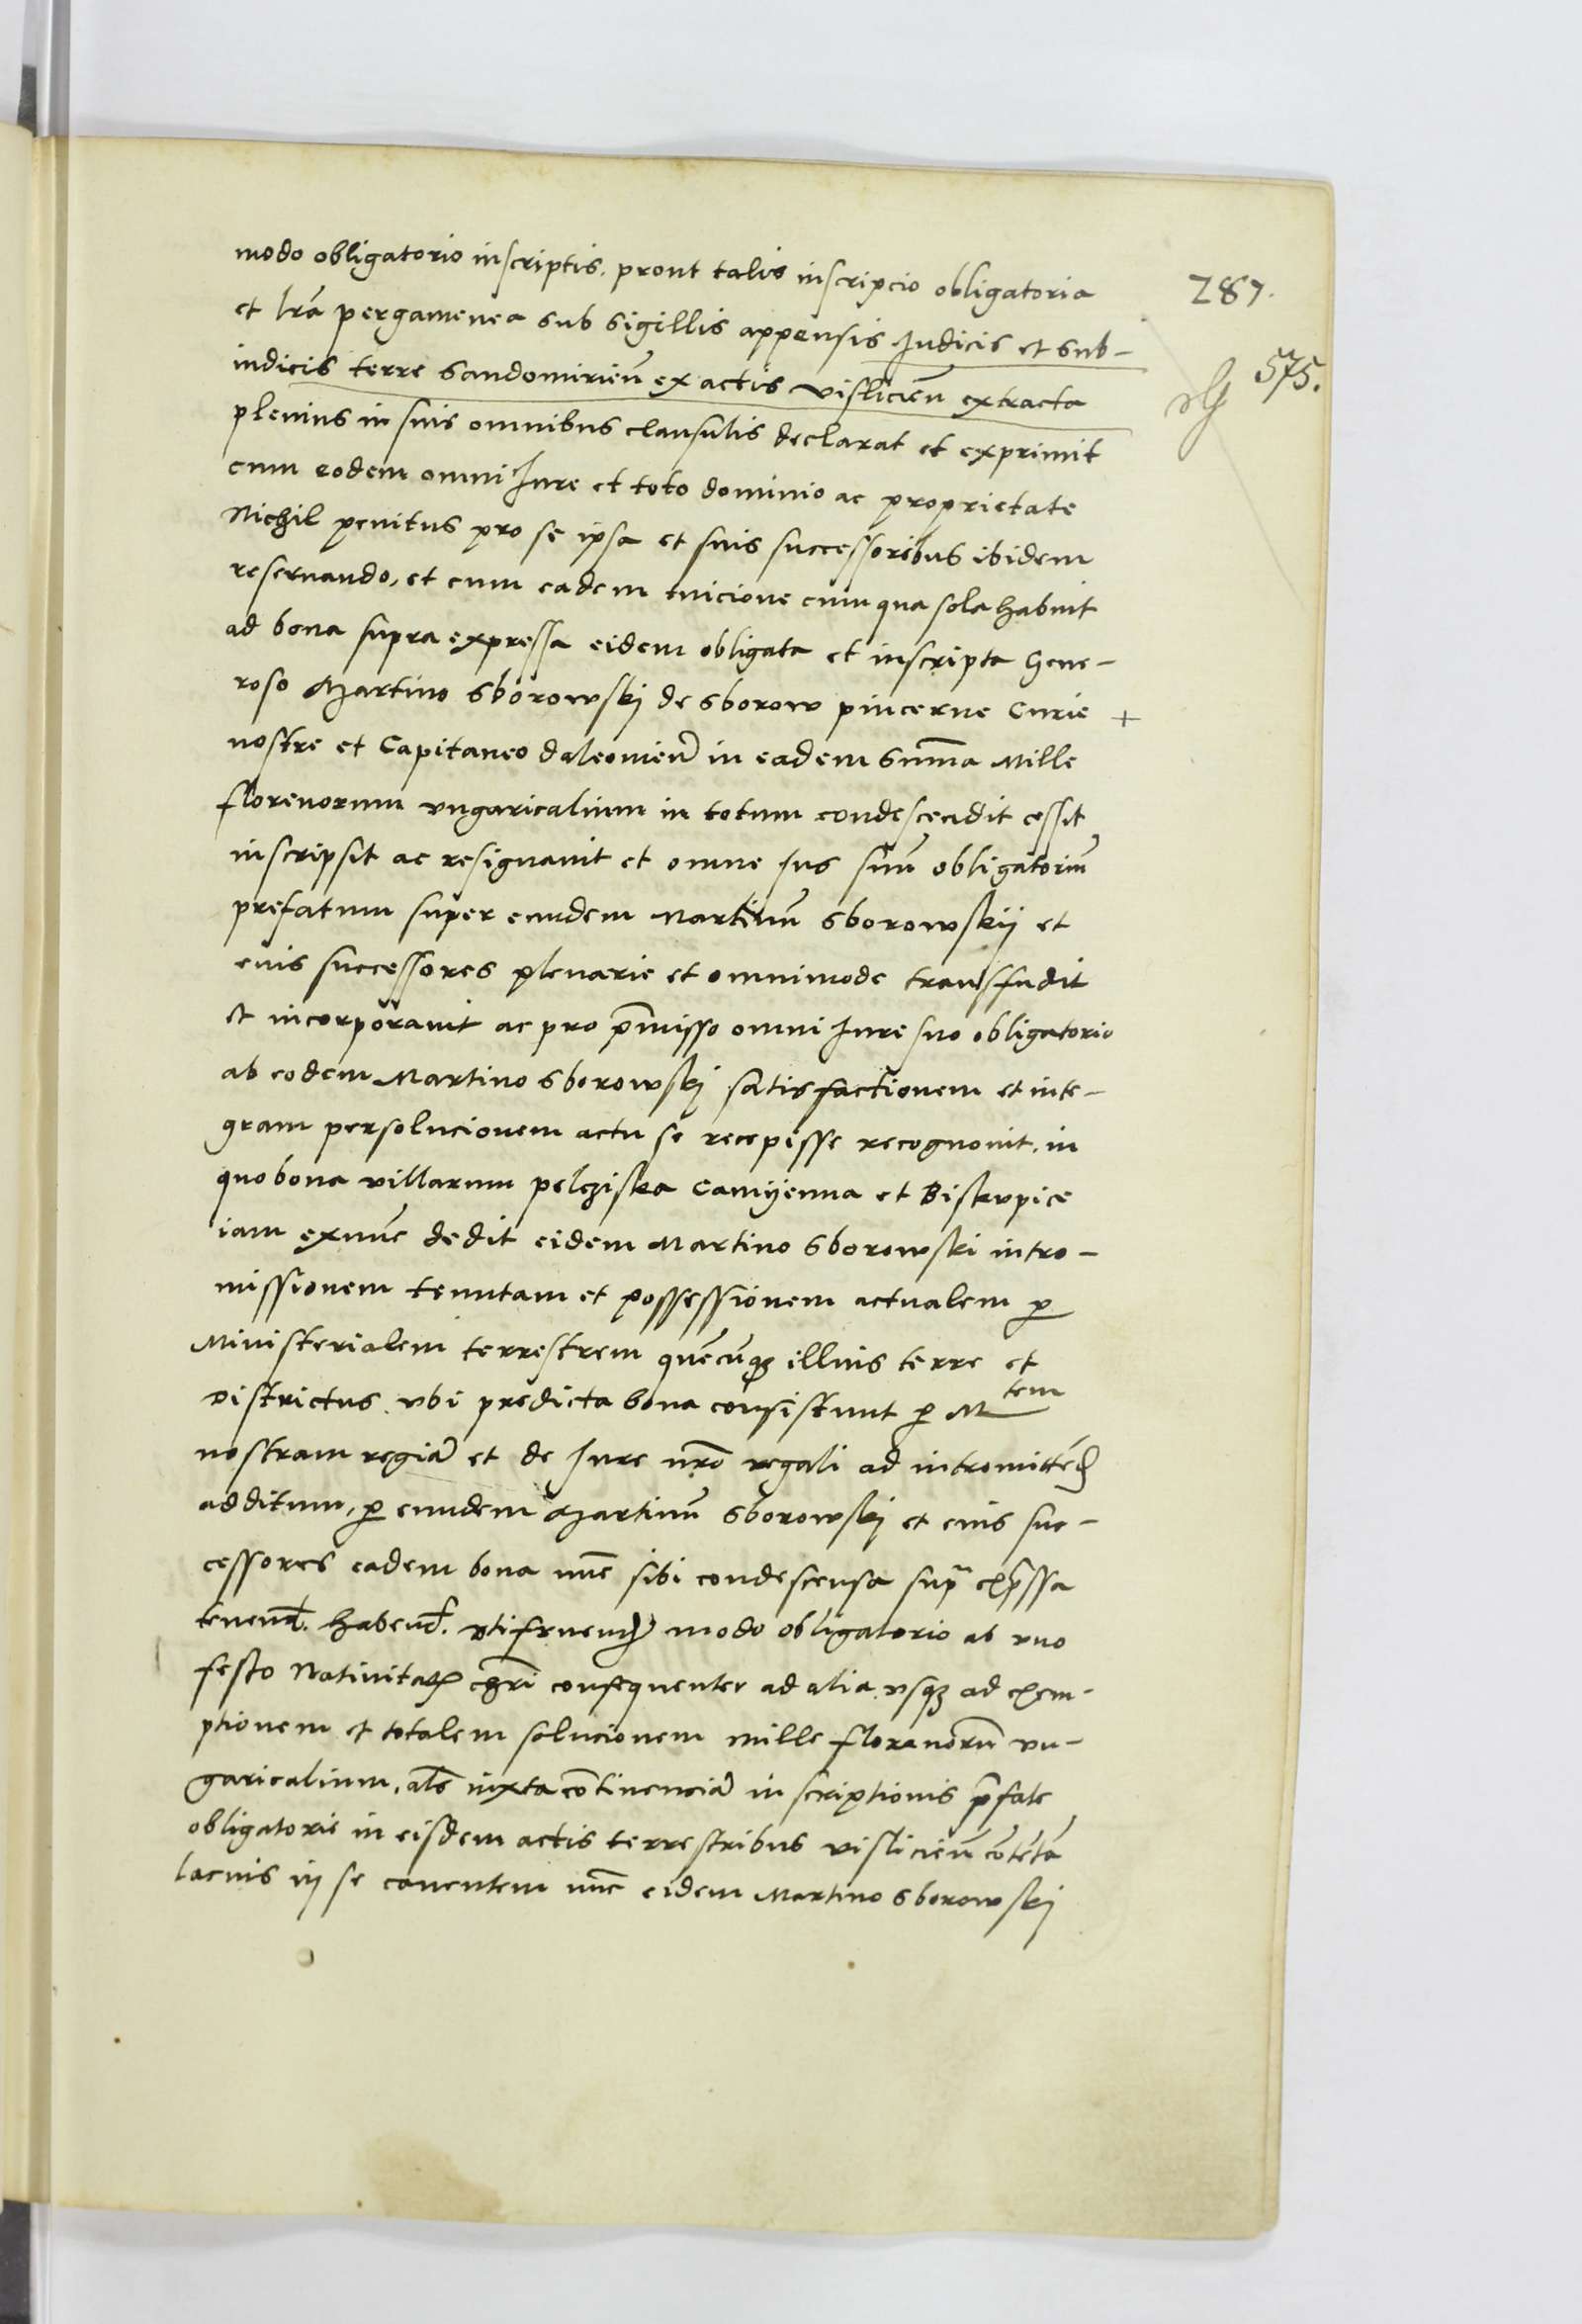 modo obligatorio inscriptis. prout talis inscripcio obligatoria
287.
et lr̃a pergamenea sub sigillis appensis Judicis et sub-
575.
iudicis terre sandomirien̄ ex actis vislicien̄ extracta
plenius in suis omnibus clausulis declarat et exprimit
cum eodem omni Jure et toto dominio ac proprietate
Nichil penitus pro se ipsa et suis successoribus ibidem
reseruando, et cum eadem tuicione cum qua sola habuit
ad bona supra expressa eidem obligata et inscripta Gene-
roso Martino sborowskj de sborow pincerne Curie +
nostre et Capitaneo daleomien̄ in eadem sum̄a Mille
florenorum vngaricalium in totum condescendit cessit
inscripsit ac resignauit et omne Jus suū obligatoriū
prefatum super eundem Martinū sborowskij et
euis successores plenarie et omnimode transfudit
et incorporauit ac pro p̄misso omni Jure suo obligatorio
ab eodem Martino sborowskj satisfactionem et inte-
gram persolucionem actu se recepisse recognouit. in
quo bona villarum pelcziska Camyenna et Biskupice
iam exnūc dedit eidem Martino sborowski intro-
missionem tenutam et possessionem actualem p̱
Ministerialem terrestrem quēcūqꝫ illius terre et
Districtus. vbi predicta bona consistunt p̱ M tem
nostram regiā et de Jure nr̃o regali ad intromittēd
additum, p̱ eundem Martinū sborowskj et euis suc-
cessores eadem bona nūc sibi condescensa sup̃ exp̃ssa
tenend. habend. vtifruend modo obligatorio ab vno
festo Natiuitatꝭ chr̃i consequenter ad alia vsqꝫ ad exem-
ptionem et totalem solucionem mille florenorū vn-
garicalium, als̄ iuxta cōtinenciā inscriptionis p̄fate
obligatorie in eisdem actis terrestribus vislicien̄ cōtētā
lacius in se conentem nūc eidem Martino sborowskj